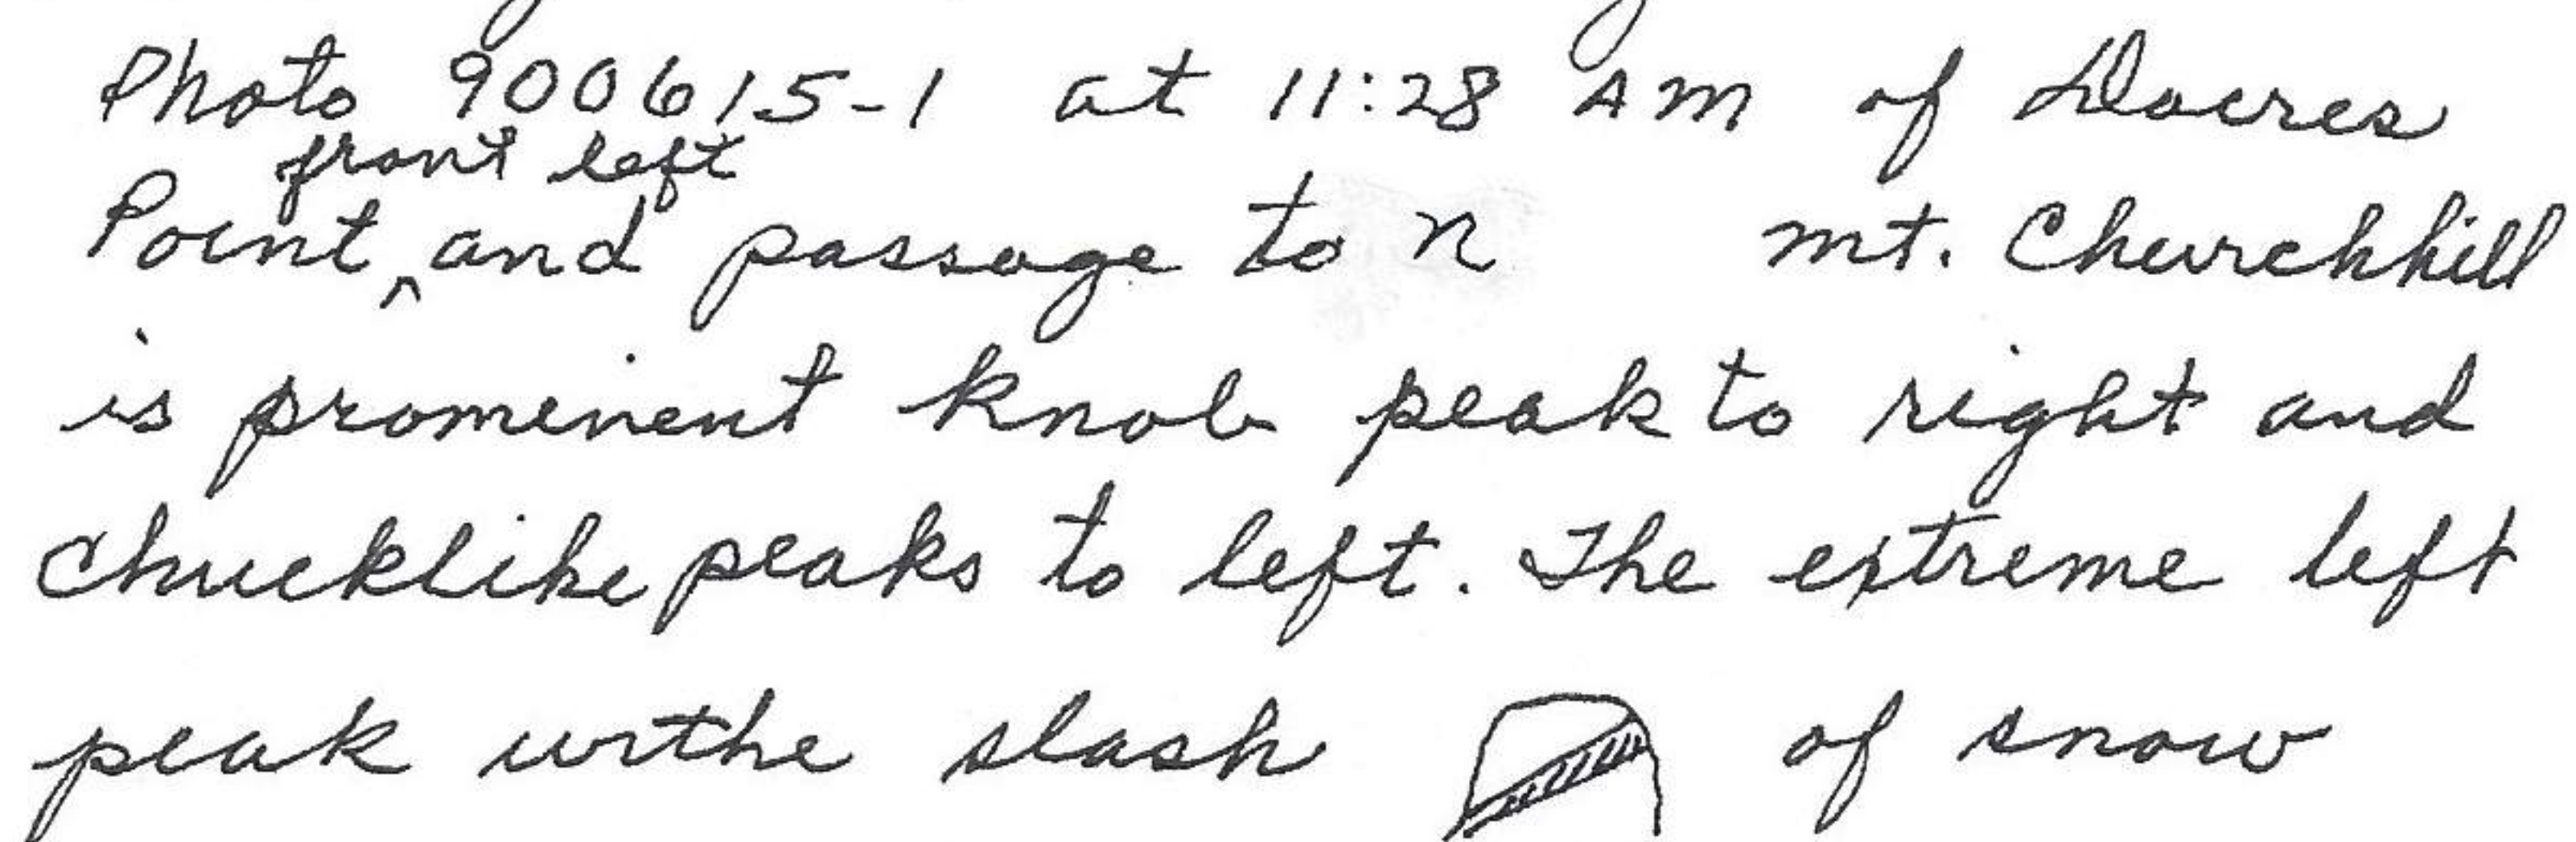 Photo 900615-1 at 11:28 AM of Dacres
front left
Point, and passage to N Mt. Churchhill
is prominent knob peak to right and
chucklike peaks to left. The extreme left
peak w the slash of snow